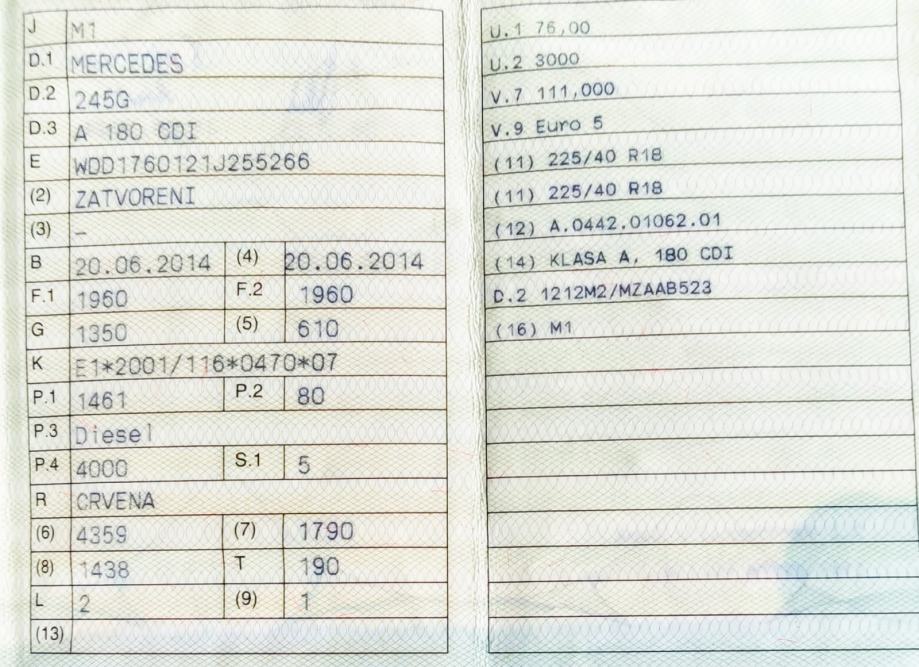 J M1
D.1 MERCEDES
D.2 245G
D.3 A 180 CDI
E WDD1760121J255266
(2) ZATVORENI
(3) –
B 20.06.2014 (4) 20.06.2014
F.1 1960 F.2 1960
G 1350 (5) 610
K E1*2001/116*0470*07
P.1 1461 P.2 80
P.3 Diesel
P.4 4000 S.1 5
R CRVENA
(6) 4359 (7) 1790
(8) 1438 T 190
L 2 (9) 1
(13)
U.1 76,00
U.2 3000
V.7 111,000
V.9 Euro 5
(11) 225/40 R18
(11) 225/40 R18
(12) A.0442.01062.01
(14) KLASA A, 180 CDI
D.2 1212M2/MZAAB523
(16) M1